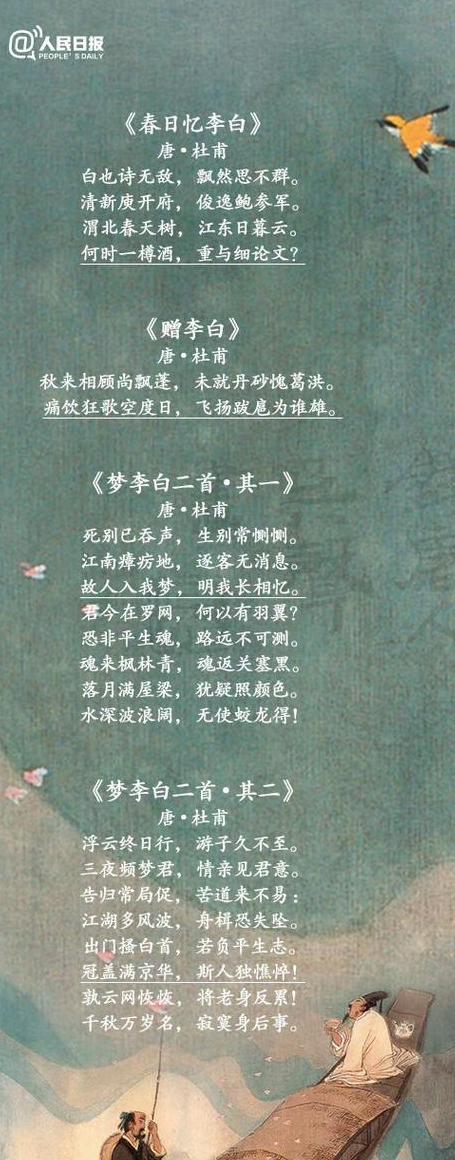 @人民日报
PEOPLE'S DAILY
《春日忆李白》
唐·杜甫
白也诗无敌，飘然思不群。
清新庾开府，俊逸鲍参军。
渭北春天树，江东日暮云。
何时一樽酒，重与细论文？
《赠李白》
唐·杜甫
秋来相顾尚飘蓬，未就丹砂愧葛洪。
痛饮狂歌空度日，飞扬跋扈为谁雄。
《梦李白二首·其一》
唐·杜甫
死别已吞声，生别常恻恻。
江南瘴疠地，逐客无消息。
故人入我梦，明我长相忆。
君今在罗网，何以有羽翼？
恐非平生魂，路远不可测。
魂来枫林青，魂返关塞黑。
落月满屋梁，犹疑照颜色。
水深波浪阔，无使蛟龙得！
《梦李白二首·其二》
唐·杜甫
浮云终日行，游子久不至。
三夜频梦君，情亲见君意。
告归常局促，苦道来不易：
江湖多风波，舟楫恐失坠。
出门搔白首，若负平生志。
冠盖满京华，斯人独憔悴！
孰云网恢恢，将老身反累！
千秋万岁名，寂寞身后事。